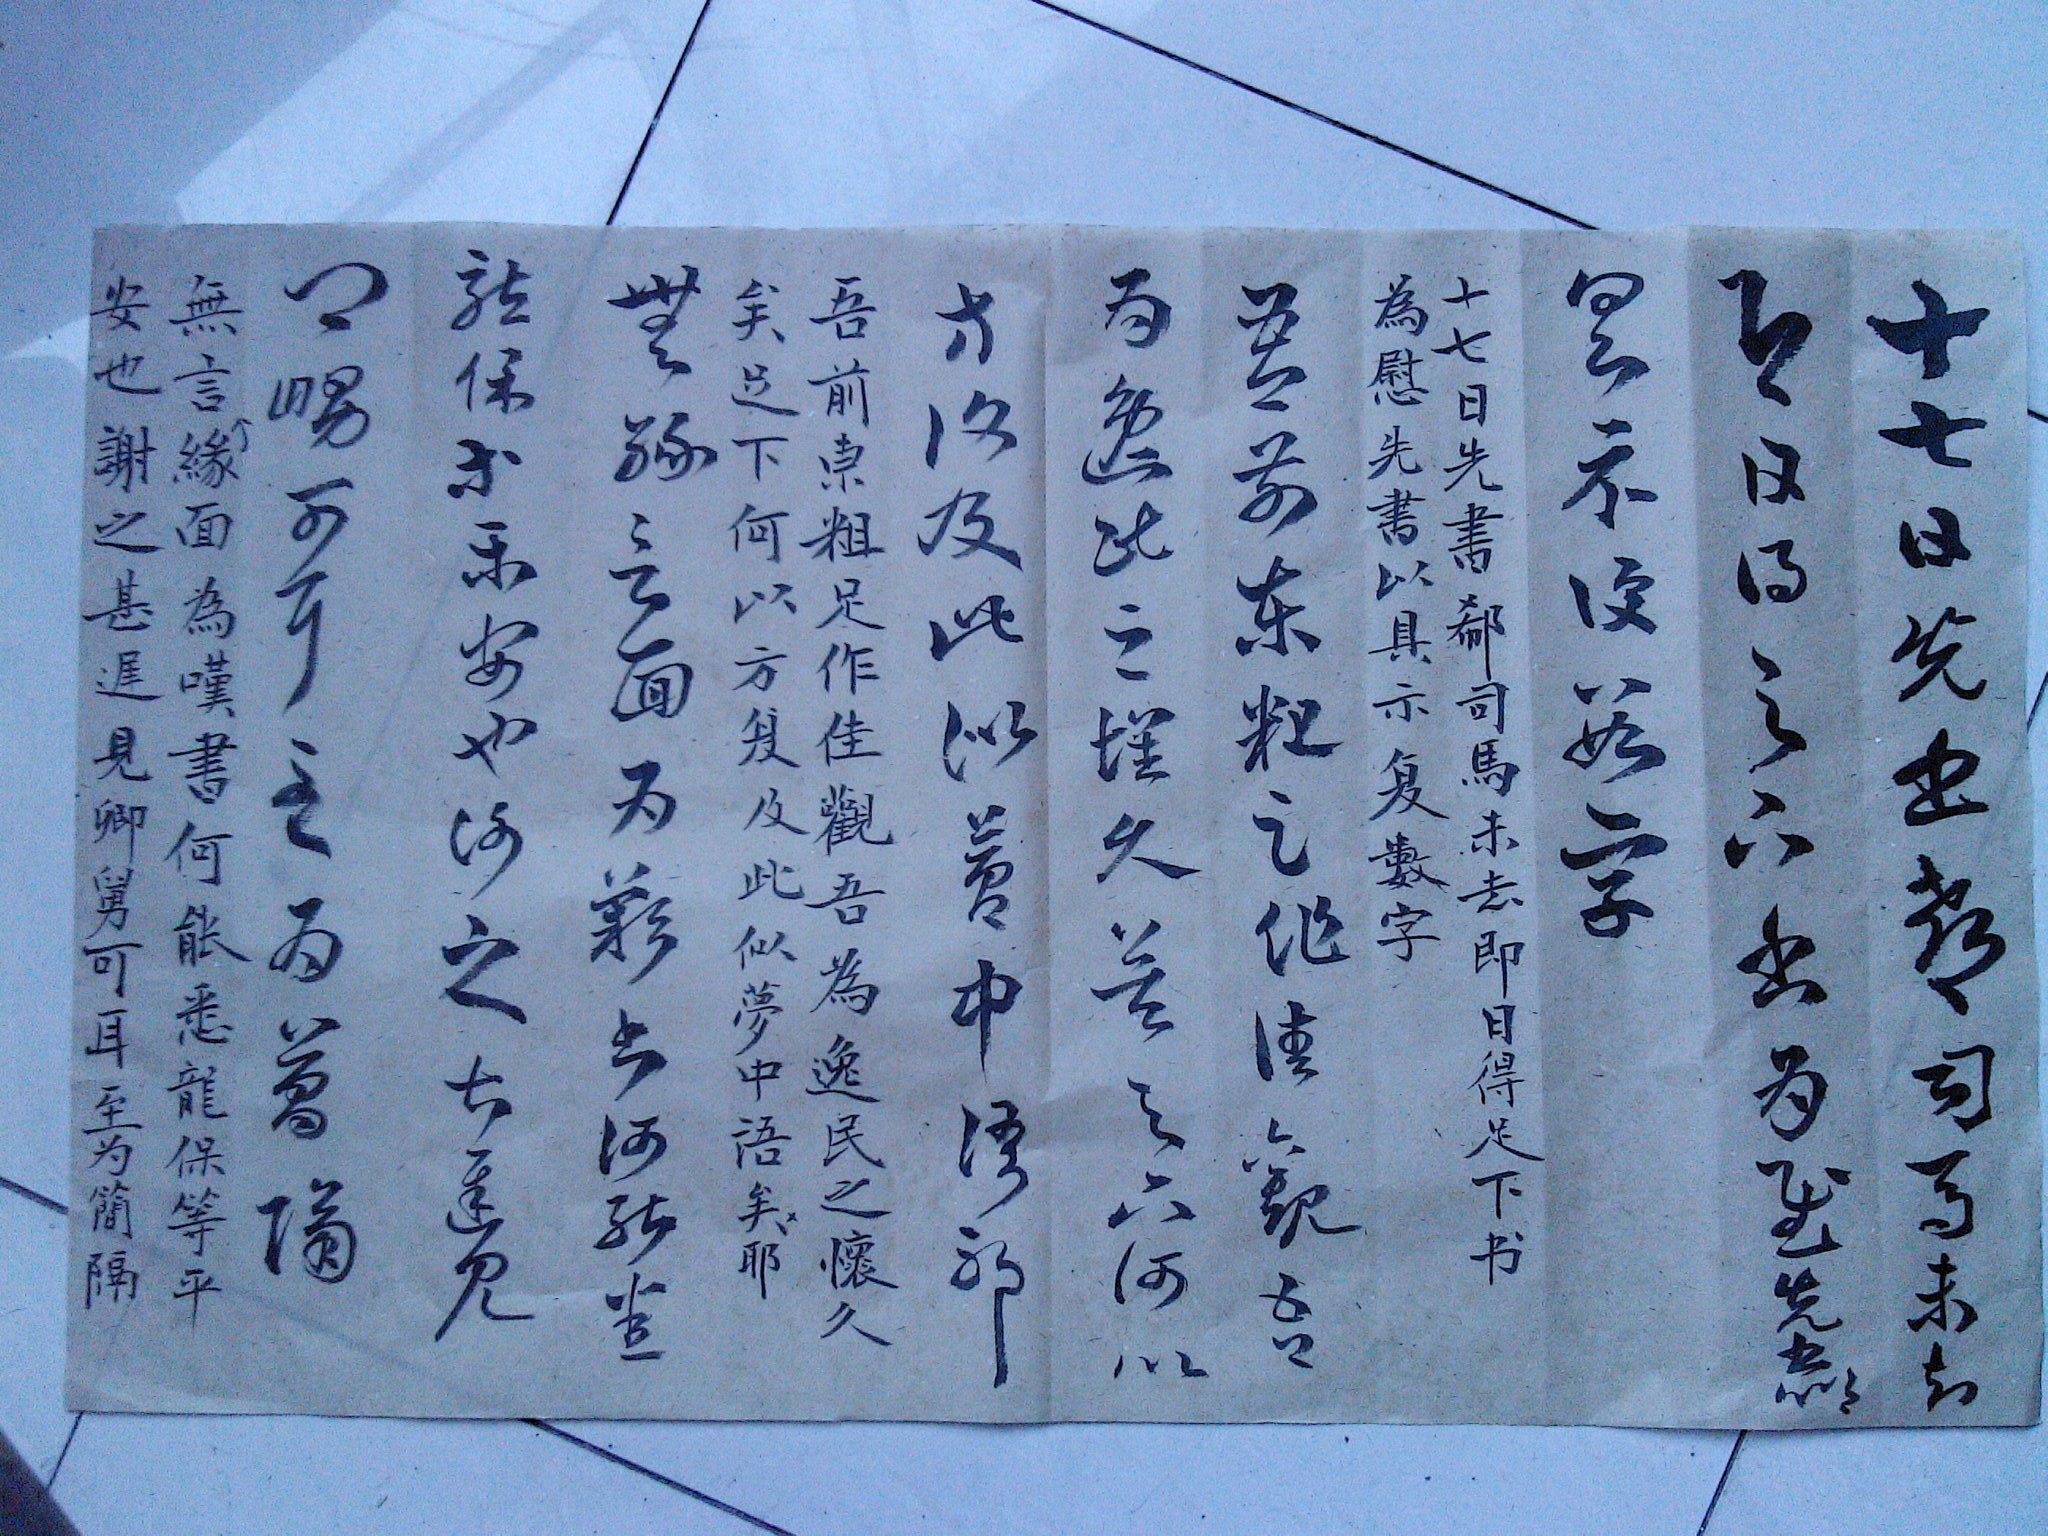 十七日先書郗司馬未去
即日得足下書為慰先書以
具示復數字
十七日先書郗司馬未去即日得足下书
為慰先書以具示复數字
吾前東粗足作佳觀吾
為逸民之懷久矣足下何以
方復及此似夢中語耶
吾前東粗足作佳觀吾為逸民之懷久
矣足下何以方复及此似夢中語矣耶
無緣言面為嘆書何能悉
龍保等平安也謝之甚遲見
卿舅可耳至為簡隔
無言緣面為嘆書何能悉龍保等平
安也謝之甚遲見卿舅可耳至为簡隔